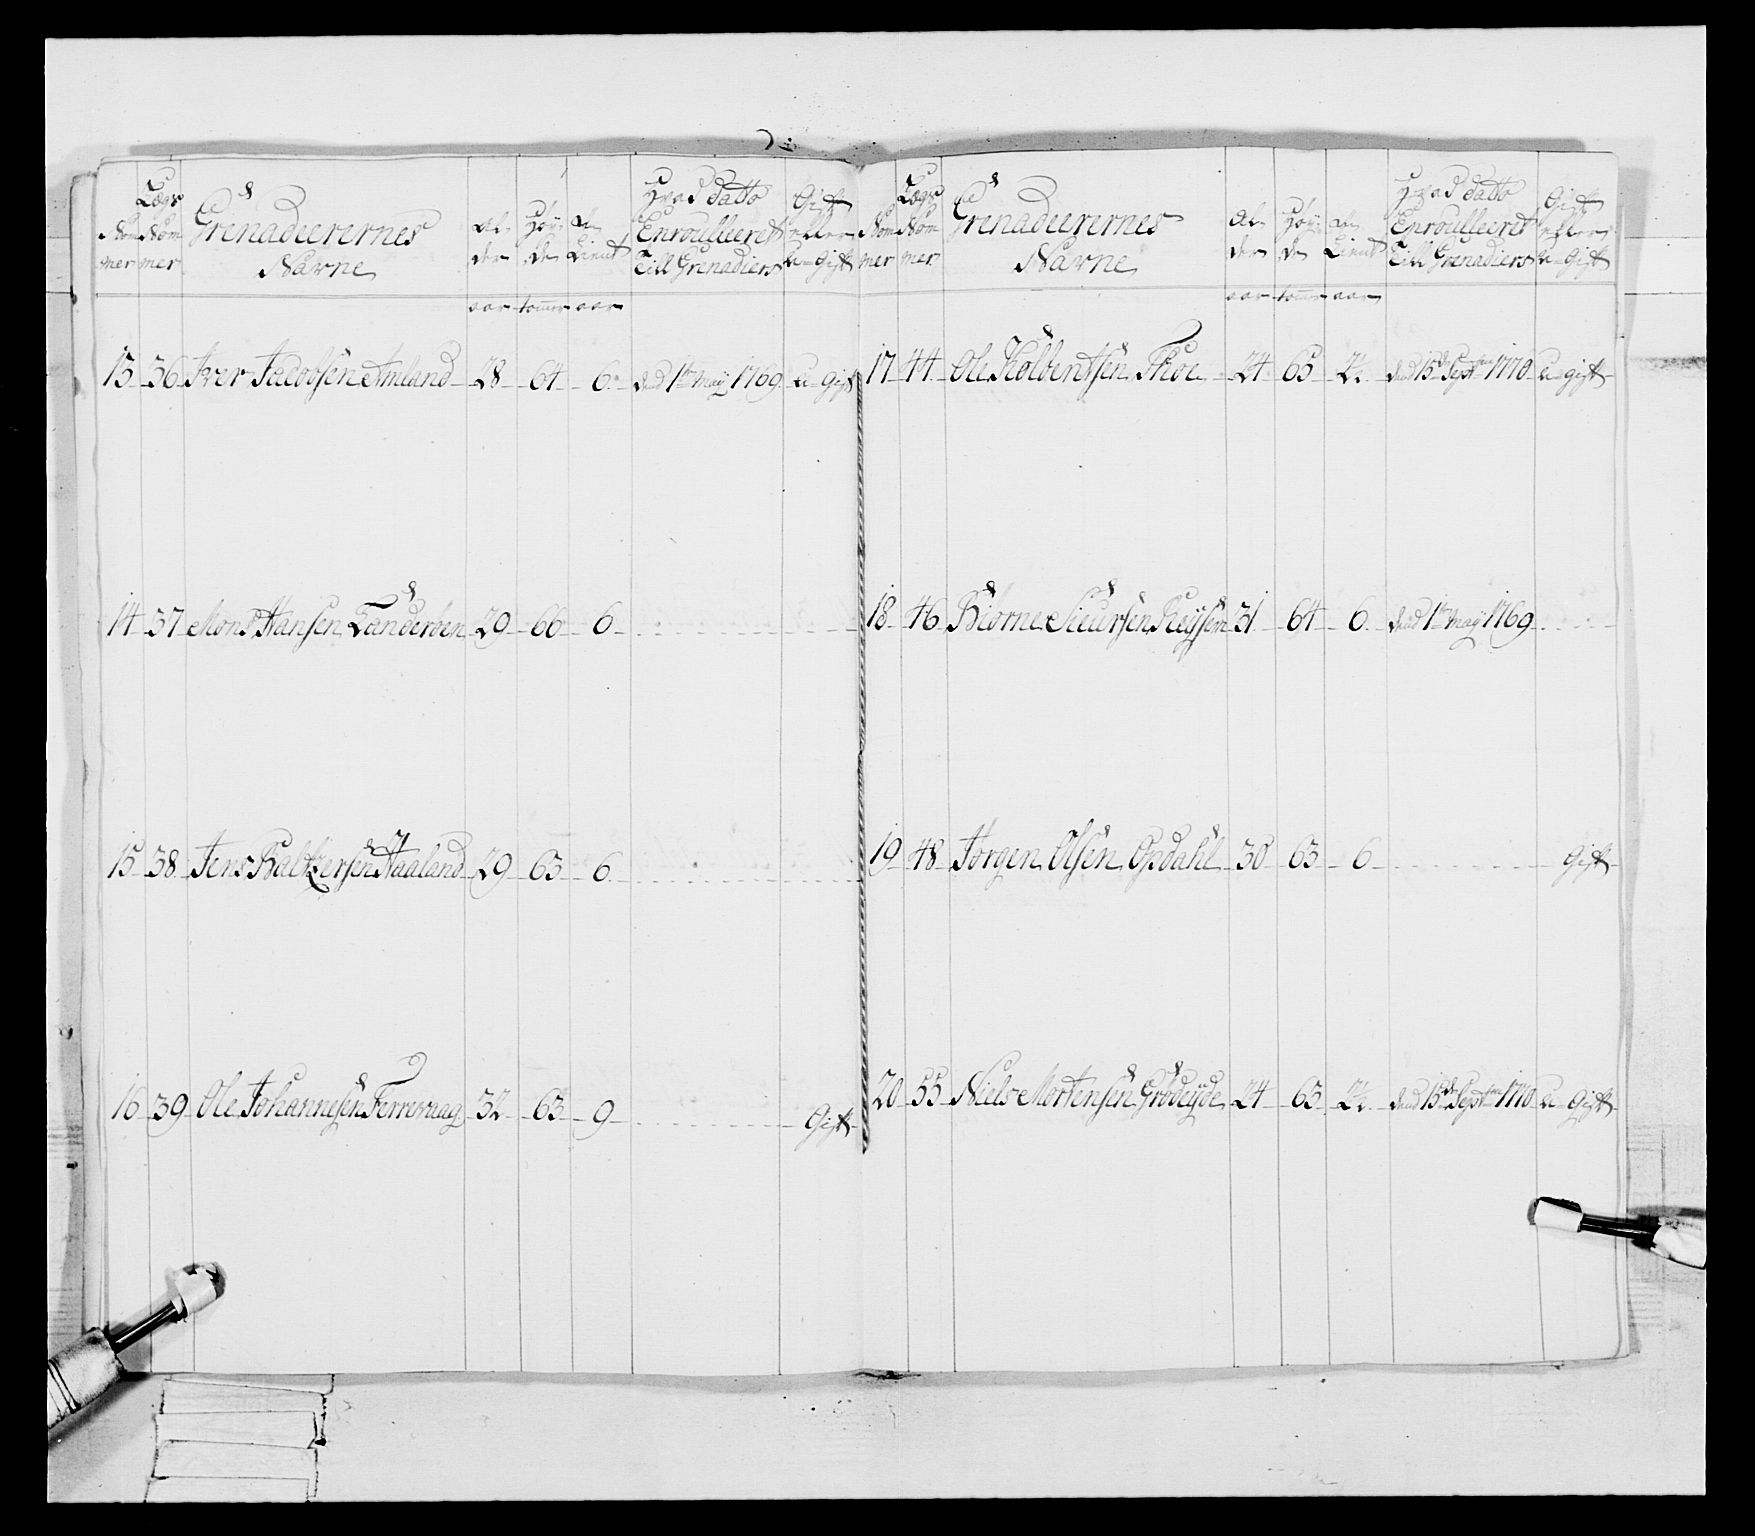 Nom
mer
Lægs
Nom
mer
Grenadeerernes
Navne
al-
der
Høy-
de
tient
Hvad datto
Enroulleeret
Till Grenadiers
Gift
eller
u-Gift
aar tommr aar
13 36 Iver Jacobsen Amland 28 64 6 dend 1te May 1769 u-Gift
14 37 Mons Hansen Tanderøen 29 66 6
15 38 Jens Baltzersen Haaland 29 63 6
16 39 Ole Johannesen Ferrevaag 32 63 9 Gift
Nom
mer
Lægs
Nom
mer
Grenadeerernes
Navne
al-
der
Høy-
de
tient
Hvad datto
Enroulleeret
Till Grenadiers
Gift
eller
u-Gift
aar tommr aar
17 44 Ole Kolbentsen Thoe 24 65 2½ dend 15de Septem 1770 u-gift
18 46 Biørne Sieursen Reysen 31 64 6 dend 1te May 1769
19 48 Jørgen Olsen Opdahl 30 63 6 Gift
20 55 Niels Mortensen Grødeyde 24 63 2½ dend 15de Septem 1770 u-Gift